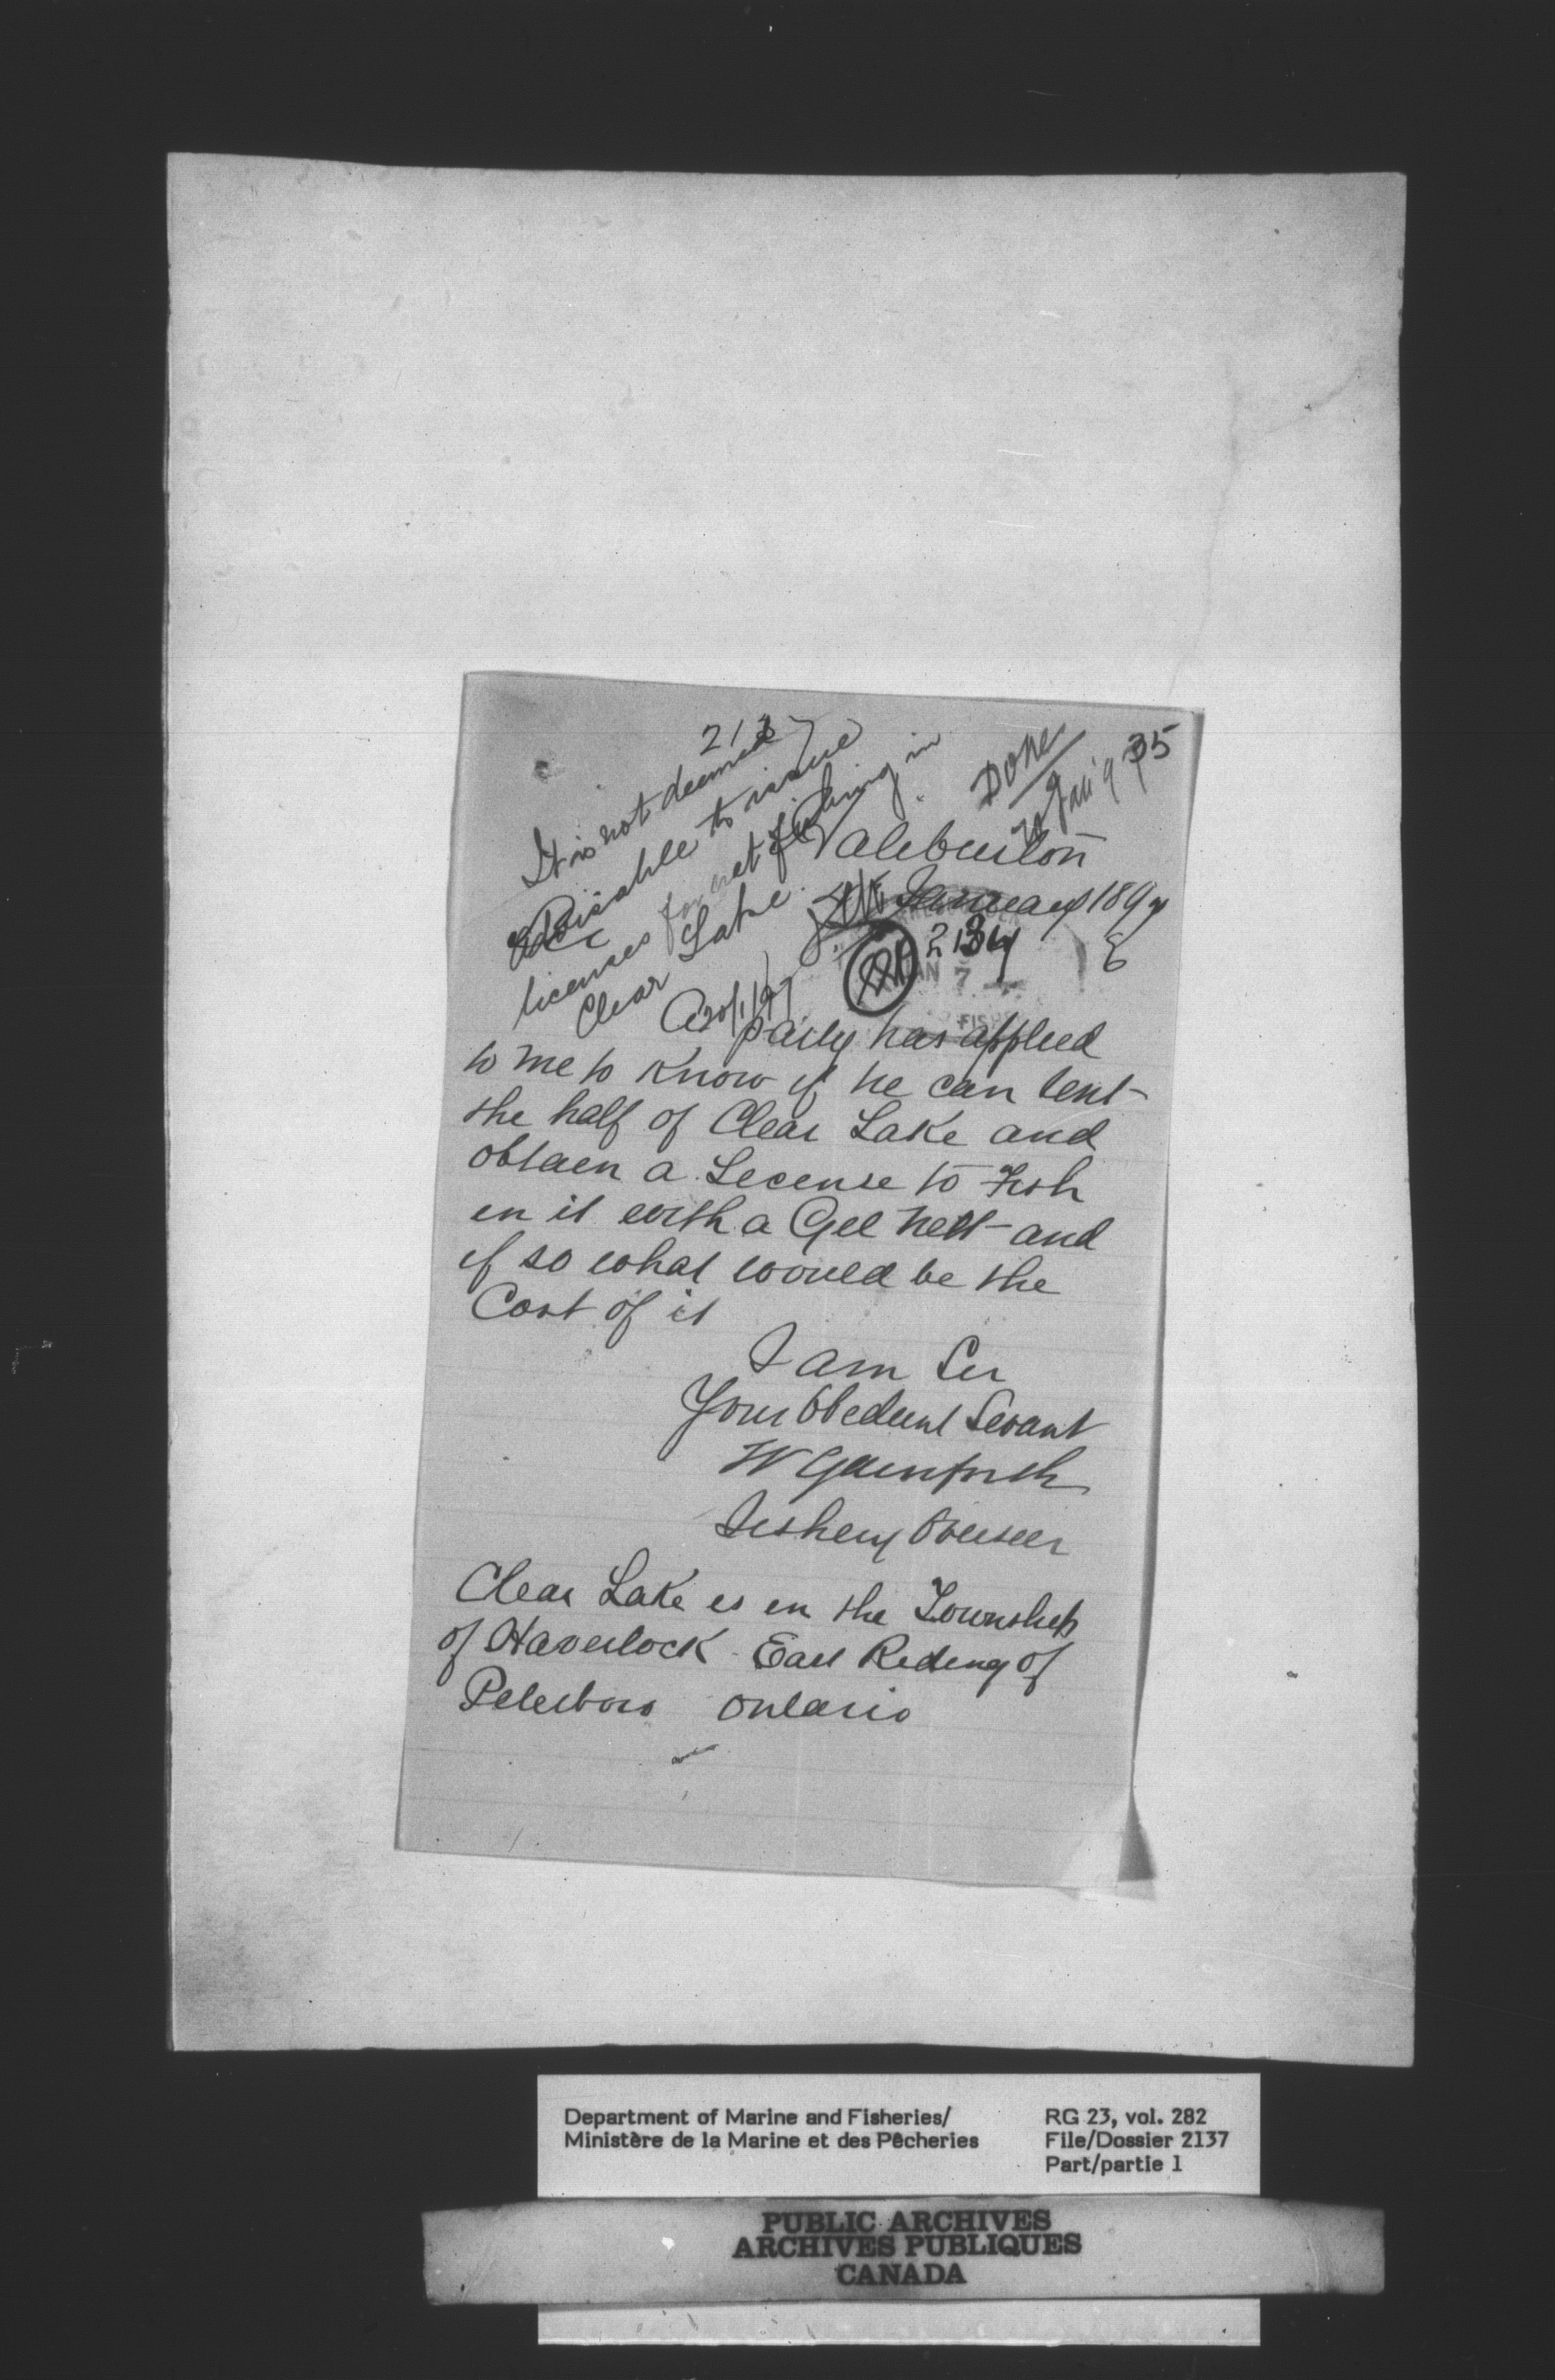 2137
It is not deemed
advisable to issue
licenses for net fishing in
Clear Lake.
20/1/97
Done
35
Haliburton
January 1897
2134
JAN 7
A party has applied
to me to Know if he can rent
the half of Clear Lake and
obtain a License to Fish
in it with a Gill Nett and
if so what would be the
Cost of it
I am Sir
Your Obedient Servant
W Gainforth
Fishery Overseer
Clear Lake is in the Township
of Havelock East Riding of
Peterboro Ontario
Department of Marine and Fisheries/
Ministère de la Marine et des Pêcheries
RG 23, vol. 282
File/Dossier 2137
Part/partie 1
PUBLIC ARCHIVES
ARCHIVES PUBLIQUES
CANADA